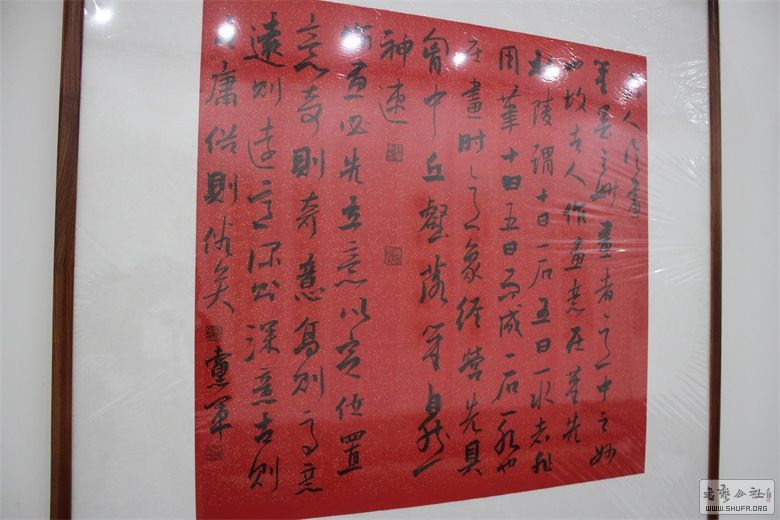 人论畫
筆墨之妙畫者意中之妙
也故古人作畫意在筆先
杜陵謂十日一石五日一水者非
用筆十日五日而成一石一水也
在畫時意象經營先具
胸中丘壑落筆自然
神速
作畫必先立意以定位置
意奇則奇意高則高意
遠則遠意深則深意古則
古庸俗則俗矣
黨軍
书艺公社
WWW.SHUFA.ORG